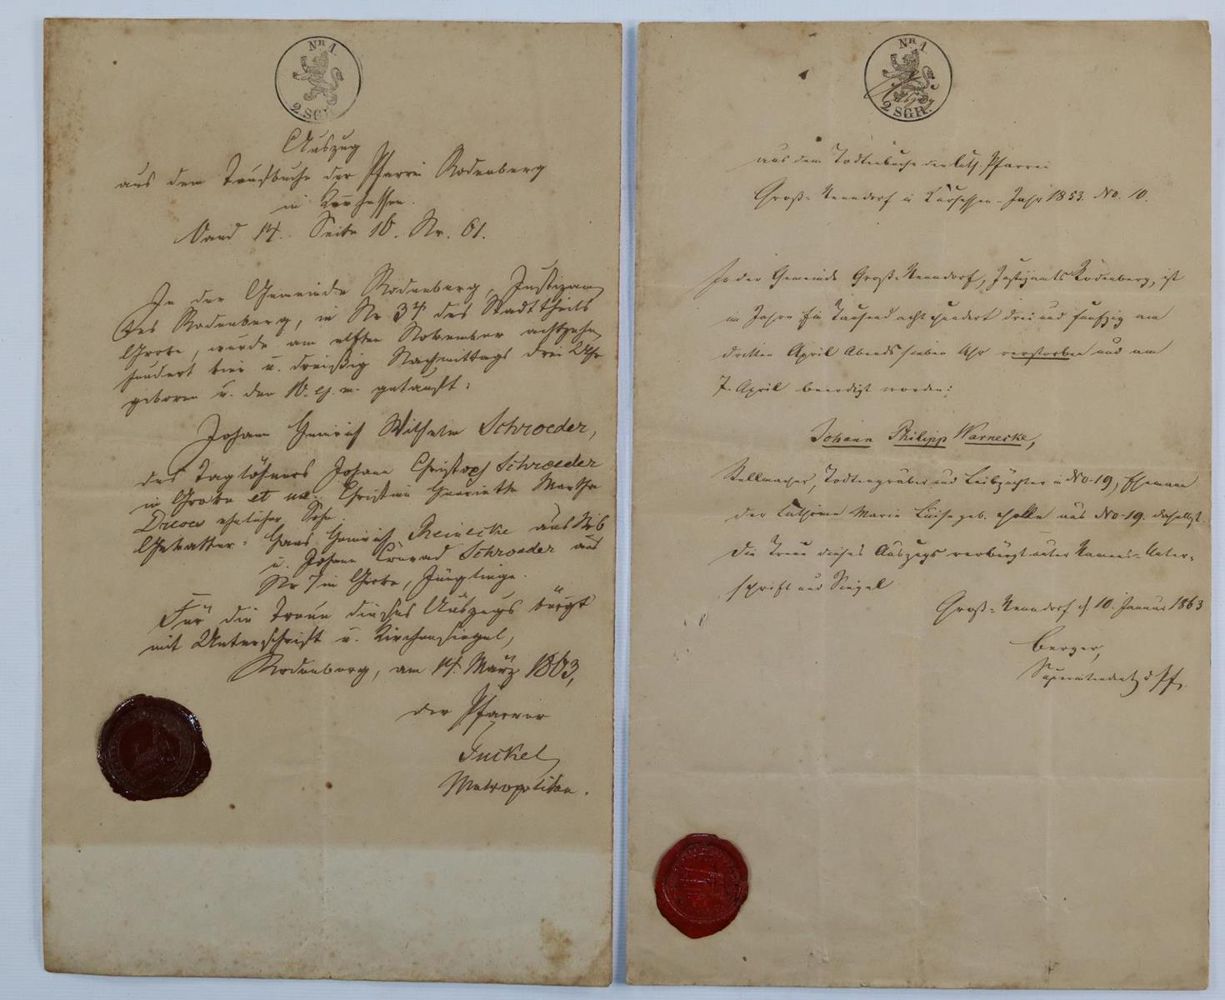 Nr. 1.
2 SGR.
Auszug
aus dem Taufbuche der Pfarrei Rodenberg
in Kurhessen.
Band 14. Seite 16. Nr. 61.
In der Gemeinde Rodenberg, Justizam
tes Rodenberg, in Nr. 34 des Stadttheils
Grove, wurde am elften November achtzehn
hundert vier u. dreißig Nachmittags drei Uhr
geboren u. den 16. ej. m. getauft:
Johann Heinrich Wilhelm Schroeder,
des Taglöhners Johann Christoph Schroeder
in Grove et ux. Christine Henriette Martha
ehelicher Sohn.
Gevatter: Hans Heinrich Reinecke aus
u. Johann Conrad Schroeder aus
Nr. 7 in Grove, Jünglinge.
Für die Treue dieses Auszugs bürgt
mit Unterschrift u. Kirchensiegel,
Rodenberg, am 14. März 1863,
der Pfarrer
Fuckel
Metropolitan.
Nr. 1
2 SGR.
aus dem Todtenbuche der luth. Pfarrei
Groß-Nenndorf in Kurhessen. Jahr 1853. No. 10.
In der Gemeinde Groß-Nenndorf, Justizamts Rodenberg, ist
im Jahre Ein Tausend acht hundert drei und funfzig am
dritten April Abends sieben Uhr verstorben und am
7. April beerdigt worden:
Johann Philipp Warnecke,
Stellmacher, Todtengräber und Leibzüchter in No. 19, Ehemann
der Cathrine Marie Luise geb. Holle aus No. 19. daselbst.
Die Treue dieses Auszugs verbürgt unter Namens-Unter-
schrift und Siegel
Groß-Nenndorf d. 10. Januar 1863
Berger,
Superintendent